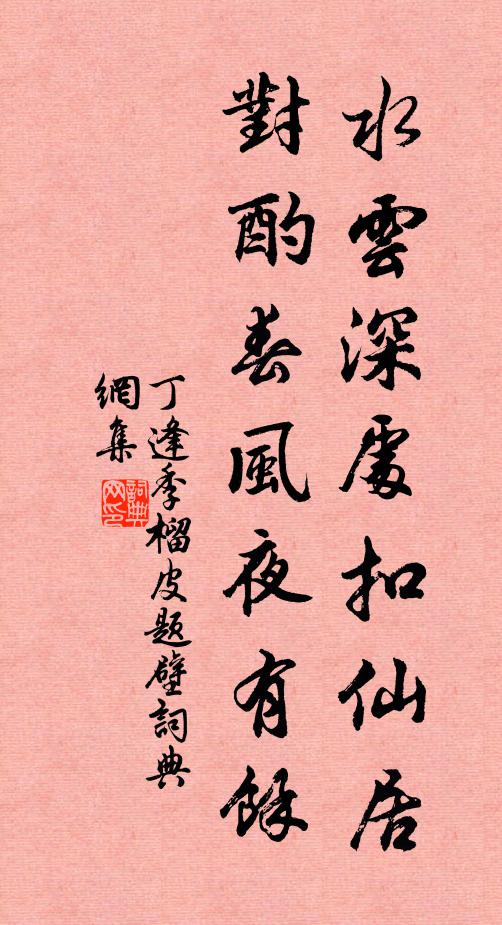 水雲深處扣仙居
對酌春風夜有餘
丁逢季榴皮題壁詞典
網集
詞典
网印